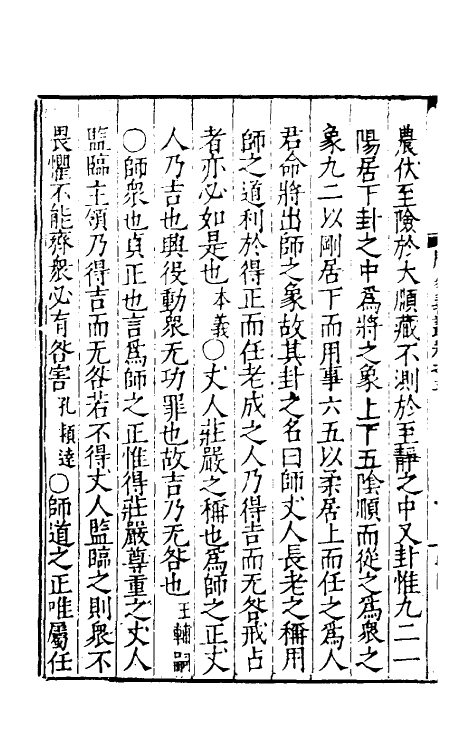 農伏至險於大順藏不測於至靜之中又卦惟九二一
陽居下卦之中爲將之象上下五陰順而從之爲衆之
象九二以剛居下而用事六五以柔居上而任之爲人
君命將出師之象故其卦之名曰師丈人長老之稱用
師之道利於得正而任老成之人乃得吉而无咎戒占
者亦必如是也本義〇丈人莊嚴之稱也爲師之正丈
人乃吉也興役動衆无功罪也故吉乃无咎也王輔嗣
〇師衆也貞正也言爲師之正惟得莊嚴尊重之丈人
監臨主領乃得吉而无咎若不得丈人監臨之則衆不
畏懼不能齊衆必有咎害孔穎達〇師道之正唯屬任